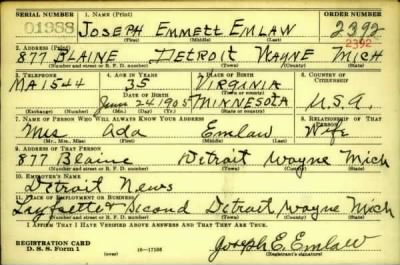 SERIAL NUMBER 1. NAME (Print) ORDER NUMBER
01988 JOSEPH EMMETT EMLAW 2392
(First) (Middle) (Last)
2392
2. ADDRESS (Print)
877 BLAINE DETROIT WAYNE MICH
(Number and street or R. F. D. number) (Town) (County) (State)
3. TELEPHONE 4. AGE IN YEARS 5. PLACE OF BIRTH 6. COUNTRY OF CITIZENSHIP
MA 1544 35 VIRGINIA
DATE OF BIRTH
June 24 1905 MINNESOTA U.S.A.
(Exchange) (Number) (Mo.) (Day) (Yr.) (State or country)
7. NAME OF PERSON WHO WILL ALWAYS KNOW YOUR ADDRESS 8. RELATIONSHIP OF THAT PERSON
Mrs Ada Emlaw Wife
(Mr., Mrs., Miss) (First) (Middle) (Last)
9. ADDRESS OF THAT PERSON
877 Blaine Detroit Wayne Mich
(Number and street or R. F. D. number) (Town) (County) (State)
10. EMPLOYER'S NAME
Detroit News
11. PLACE OF EMPLOYMENT OR BUSINESS
Lafayette & Second Detroit Wayne Mich
(Number and street or R. F. D. number) (Town) (County) (State)
I AFFIRM THAT I HAVE VERIFIED ABOVE ANSWERS AND THAT THEY ARE TRUE.
REGISTRATION CARD
D. S. S. Form 1 (over) 16-17105 Joseph E. Emlaw
(Registrant's signature)